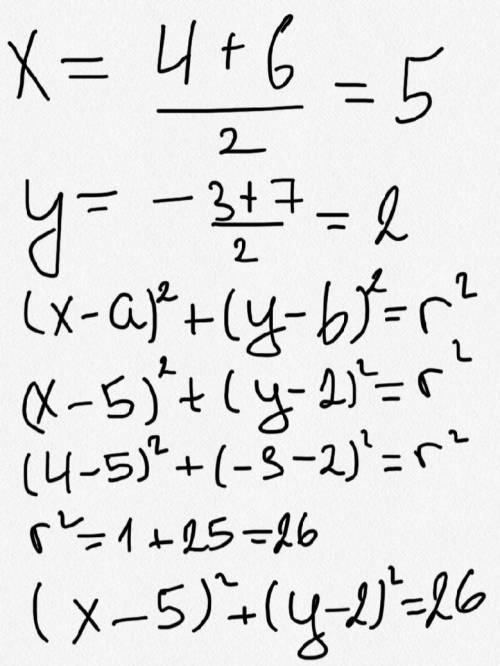 x = (4 + 6)/2 = 5
y = -(3 + 7)/2 = 2
(x - a)² + (y - b)² = r²
(x - 5)² + (y - 2)² = r²
(4 - 5)² + (-3 - 2)² = r²
r² = 1 + 25 = 26
(x - 5)² + (y - 2)² = 26